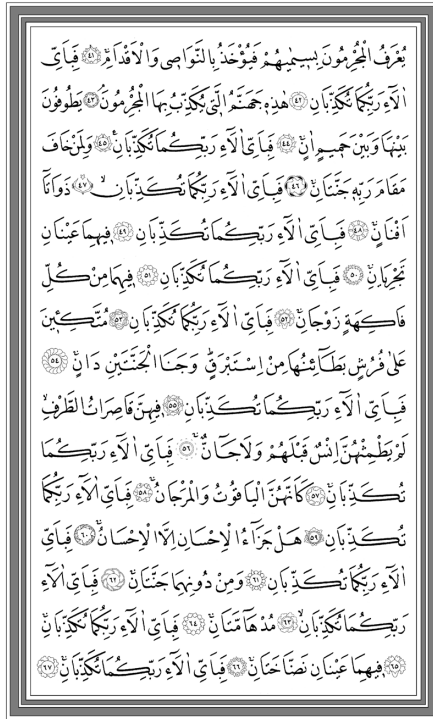 يُعْرَفُ الْمُجْرِمُونَ بِسِيمٰيهُمْ فَيُؤْخَذُ بِالنَّوَاصِى وَالْاَقْدَامِۚ ﴿٤١﴾ فَبِاَىِّ
اٰلَٓاءِ رَبِّكُمَا تُكَذِّبَانِ ﴿٤٢﴾ هٰذِه۪ جَهَنَّمُ الَّتٖى يُكَذِّبُ بِهَا الْمُجْرِمُونَۢ ﴿٤٣﴾ يَطُوفُونَ
بَيْنَهَا وَبَيْنَ حَمٖيمٍ اٰنٍۚ ﴿٤٤﴾ فَبِاَىِّ اٰلَٓاءِ رَبِّكُمَا تُكَذِّبَانِ۟ ﴿٤٥﴾ وَلِمَنْ خَافَ
مَقَامَ رَبِّه۪ جَنَّتَانِۚ ﴿٤٦﴾ فَبِاَىِّ اٰلَٓاءِ رَبِّكُمَا تُكَذِّبَانِۙ ﴿٤٧﴾ ذَوَاتَٓا
اَفْنَانٍۚ ﴿٤٨﴾ فَبِاَىِّ اٰلَٓاءِ رَبِّكُمَا تُكَذِّبَانِ ﴿٤٩﴾ فٖيهِمَا عَيْنَانِ
تَجْرِيَانِۚ ﴿٥٠﴾ فَبِاَىِّ اٰلَٓاءِ رَبِّكُمَا تُكَذِّبَانِ ﴿٥١﴾ فٖيهِمَا مِنْ كُلِّ
فَاكِهَةٍ زَوْجَانِۚ ﴿٥٢﴾ فَبِاَىِّ اٰلَٓاءِ رَبِّكُمَا تُكَذِّبَانِ ﴿٥٣﴾ مُتَّكِـٖٔينَ
عَلٰى فُرُشٍ بَطَٓائِنُهَا مِنْ اِسْتَبْرَقٍۜ وَجَنَا الْجَنَّتَيْنِ دَانٍۚ ﴿٥٤﴾
فَبِاَىِّ اٰلَٓاءِ رَبِّكُمَا تُكَذِّبَانِ ﴿٥٥﴾ فٖيهِنَّ قَاصِرَاتُ الطَّرْفِۙ
لَمْ يَطْمِثْهُنَّ اِنْسٌ قَبْلَهُمْ وَلَا جَٓانٌّۚ ﴿٥٦﴾ فَبِاَىِّ اٰلَٓاءِ رَبِّكُمَا
تُكَذِّبَانِۚ ﴿٥٧﴾ كَاَنَّهُنَّ الْيَاقُوتُ وَالْمَرْجَانُۚ ﴿٥٨﴾ فَبِاَىِّ اٰلَٓاءِ رَبِّكُمَا
تُكَذِّبَانِ ﴿٥٩﴾ هَلْ جَزَٓاءُ الْاِحْسَانِ اِلَّا الْاِحْسَانُۚ ﴿٦٠﴾ فَبِاَىِّ
اٰلَٓاءِ رَبِّكُمَا تُكَذِّبَانِ ﴿٦١﴾ وَمِنْ دُونِهِمَا جَنَّتَانِۚ ﴿٦٢﴾ فَبِاَىِّ اٰلَٓاءِ
رَبِّكُمَا تُكَذِّبَانِۙ ﴿٦٣﴾ مُدْهَٓامَّتَانِۚ ﴿٦٤﴾ فَبِاَىِّ اٰلَٓاءِ رَبِّكُمَا تُكَذِّبَانِۚ
﴿٦٥﴾ فٖيهِمَا عَيْنَانِ نَضَّاخَتَانِۚ ﴿٦٦﴾ فَبِاَىِّ اٰلَٓاءِ رَبِّكُمَا تُكَذِّبَانِۚ ﴿٦٧﴾